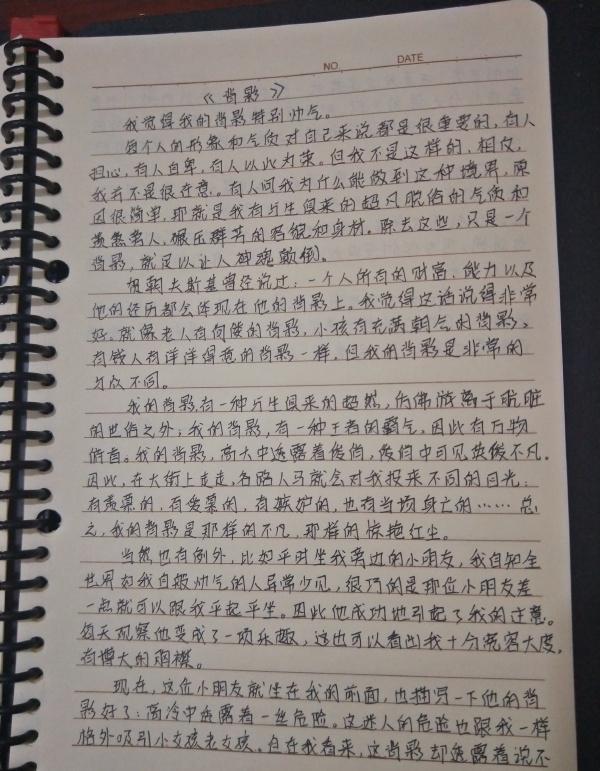 NO. DATE
《背影》
我觉得我的背影特别帅气。
每个人的形象和气质对自己来说都是很重要的,有人
担心,有人自卑,有人以此为荣。但我不是这样的,相反,
我并不是很在意。有人问我为什么能做到这种境界,原
因很简单,那就是我有与生俱来的超凡脱俗的气质和
羡煞旁人、碾压群芳的容貌和身材。除去这些,只是一个
背影,就足以让人神魂颠倒。
帆朝夫斯基曾经说过:一个人所有的财富、能力以及
他的经历都会体现在他的背影上。我觉得这话说得非常
好,就像老人有佝偻的背影,小孩有充满朝气的背影,
有钱人有洋洋得意的背影一样,但我的背影是非常的
与众不同。
我的背影,有一种与生俱来的超然,仿佛游离于肮脏
的世俗之外;我的背影,有一种王者的霸气,因此有万物
俯首。我的背影,高大中透露着俊俏,俊俏中可见英俊不凡。
因此,在大街上走走,各路人马就会对我投来不同的目光:
有羡慕的,有爱慕的,有嫉妒的,也有当场身亡的……总
之,我的背影是那样的不凡,那样的惊艳红尘。
当然也有例外,比如平时坐我旁边的小朋友,我自知全
世界如我自般帅气的人异常少见,很巧的是那位小朋友差
一点就可以跟我平起平坐。因此他成功地引起了我的注意。
每天观察他变成了一项乐趣,这也可以看出我十分宽容大度,
有增大的胸襟。
现在,这位小朋友就坐在我的前面,也描写一下他的背
影好了:高冷中透露着一丝危险。这迷人的危险也跟我一样
格外吸引小女孩老女孩。但在我看来,这背影却透露着说不